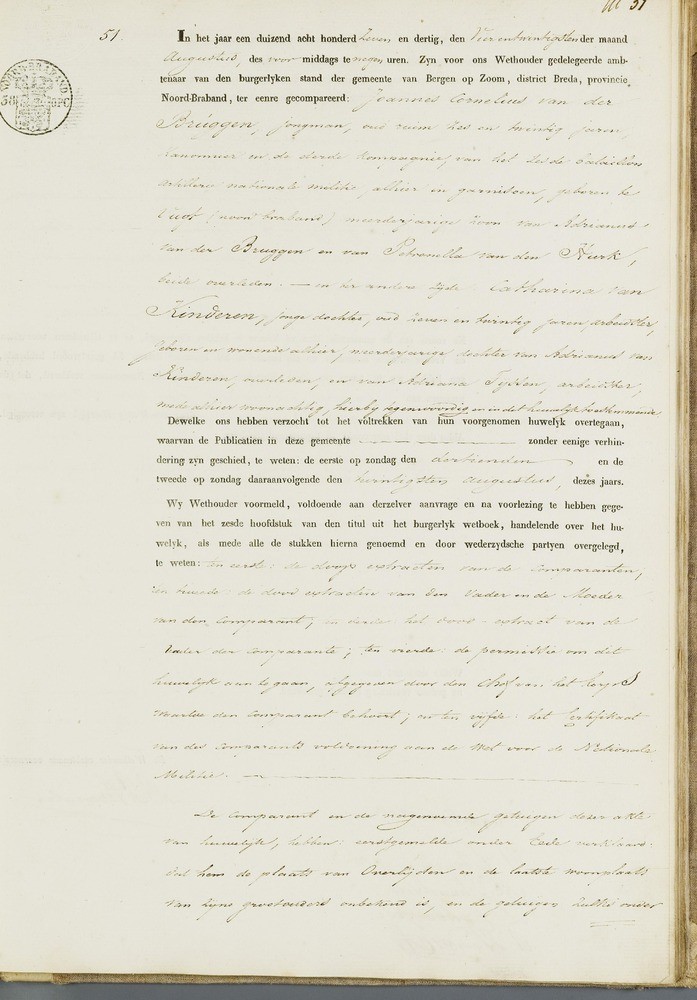 51.
In het jaar een duizend acht honderd zeven en dertig, den vierentwintigsten der maand
Augustus, des voor middags te negen uren. Zyn voor ons Wethouder gedelegeerde amb-
tenaar van den burgerlyken stand der gemeente van Bergen op Zoom, district Breda, provincie
Noord-Braband, ter eenre gecompareerd: Joannes Cornelius van der
Bruggen, jongman, oud ruim zes en twintig jaren,
kanonnier en de derde kompagnie, van het zesde bataillon
artillerie nationale militie, alhier in garnisoen, geboren te
(noord braband) meerderjarige zoon van Adrianus
van der Bruggen en van Petronella van den Hurk,
beide overleden. — en ter andere zyde Catharina van
Kinderen, jonge dochter, oud zeven en twintig jaren, arbeidster,
geboren en wonende alhier, meerderjarige dochter van Adrianus van
Kinderen, overleden, en van Adriana Tyssen, arbeidster,
mede alhier woonachtig, hierby tegenwoordig en in dit huwelyk toestemmende
Dewelke ons hebben verzocht tot het voltrekken van hun voorgenomen huwelyk overtegaan,
waarvan de Publicatien in deze gemeente — zonder eenige verhin-
dering zyn geschied, te weten: de eerste op zondag den dertienden en de
tweede op zondag daaraanvolgende den twintigsten augustus, dezes jaars.
Wy Wethouder voormeld, voldoende aan derzelver aanvrage en na voorlezing te hebben gege-
ven van het zesde hoofdstuk van den titul uit het burgerlyk wetboek, handelende over het hu-
welyk, als mede alle de stukken hierna genoemd en door wederzydsche partyen overgelegd,
te weten: ten eerste: de doop extracten van de comparanten;
ten tweede: de dood extracten van den Vader en de Moeder
van den comparant; ten derde het dood-extract van de
Vader der comparante; ten vierde: de permissie om dit
huwelyk aan te gaan, afgegeven door den Chef van het korps
waartoe den comparant behoort; en ten vyfde: het Certifikaat
van des comparants voldoening aan de Wet voor de Nationale
Militie. —
De comparant en de nagenoemde getuigen dezer akte
van huwelyk, hebben: eerstgemelde onder Eede verklaard:
dat hem de plaats van Overlyden en de laatste woonplaats
van zyne grootouders onbekend is, en de getuigen zulks onder